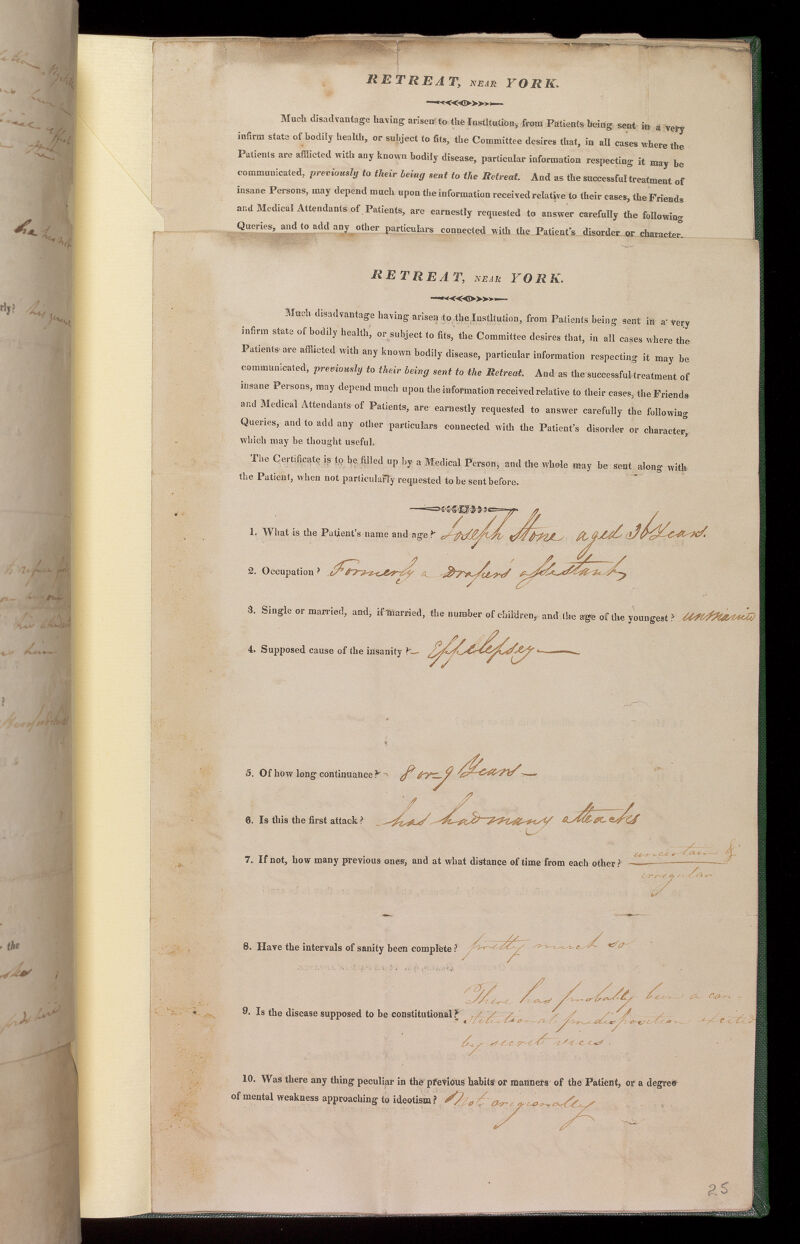 RETREAT, NEAR YORK.
Much disadvantage having arisen to the Institution, from Patients being sent in a very
infirm state of bodily health, or subject to fits, the Committee desires that, in all cases where the
Patients are afflicted with any known bodily disease, particular information respecting it may be
communicated, previously to their being sent to the Retreat. And as the successful treatment of
insane Persons, may depend much upon the information received relative to their cases, the Friends
and Medical Attendants of Patients, are earnestly requested to answer carefully the following
Queries, and to add any other particulars connected with the Patient's disorder or character.
RETREAT, NEAR YORK.
Much disadvantage having arisen to the Institution, from Patients being sent in a very
infirm state of bodily health, or subject to fits, the Committee desires that, in all cases where the
Patients are afflicted with any known bodily disease, particular information respecting it may be
communicated, previously to their being sent to the Retreat. And as the successful treatment of
insane Persons, may depend much upon the information received relative to their cases, the Friends
and Medical Attendants of Patients, are earnestly requested to answer carefully the following
Queries, and to add any other particulars connected with the Patient's disorder or character,
which may be thought useful.
The Certificate is to be filled up by a Medical Person, and the whole may be sent along with
the Patient, when not particularly requested to be sent before.
1. What is the Patient's name and age? Joseph Stone aged 36 Years.
2. Occupation? Formerly a Draper's assistant
3. Single or married, and, if married, the number of children, and the age of the youngest? unmarried
4. Supposed cause of the insanity? Eppelepsey
5. Of how long continuance? 8 or 9 Years
6. Is this the first attack? has had many attacks
7. If not, how many previous ones, and at what distance of time from each other? uncertain &
irregular
8. Have the intervals of sanity been complete? pretty much so
9. Is the disease supposed to be constitutional? There has probably been a con-
stitutional predisposition excited
by secret vices.
10. Was there any thing peculiar in the previous habits or manners of the Patient, or a degree
of mental weakness approaching to ideotism? Not origionally
25